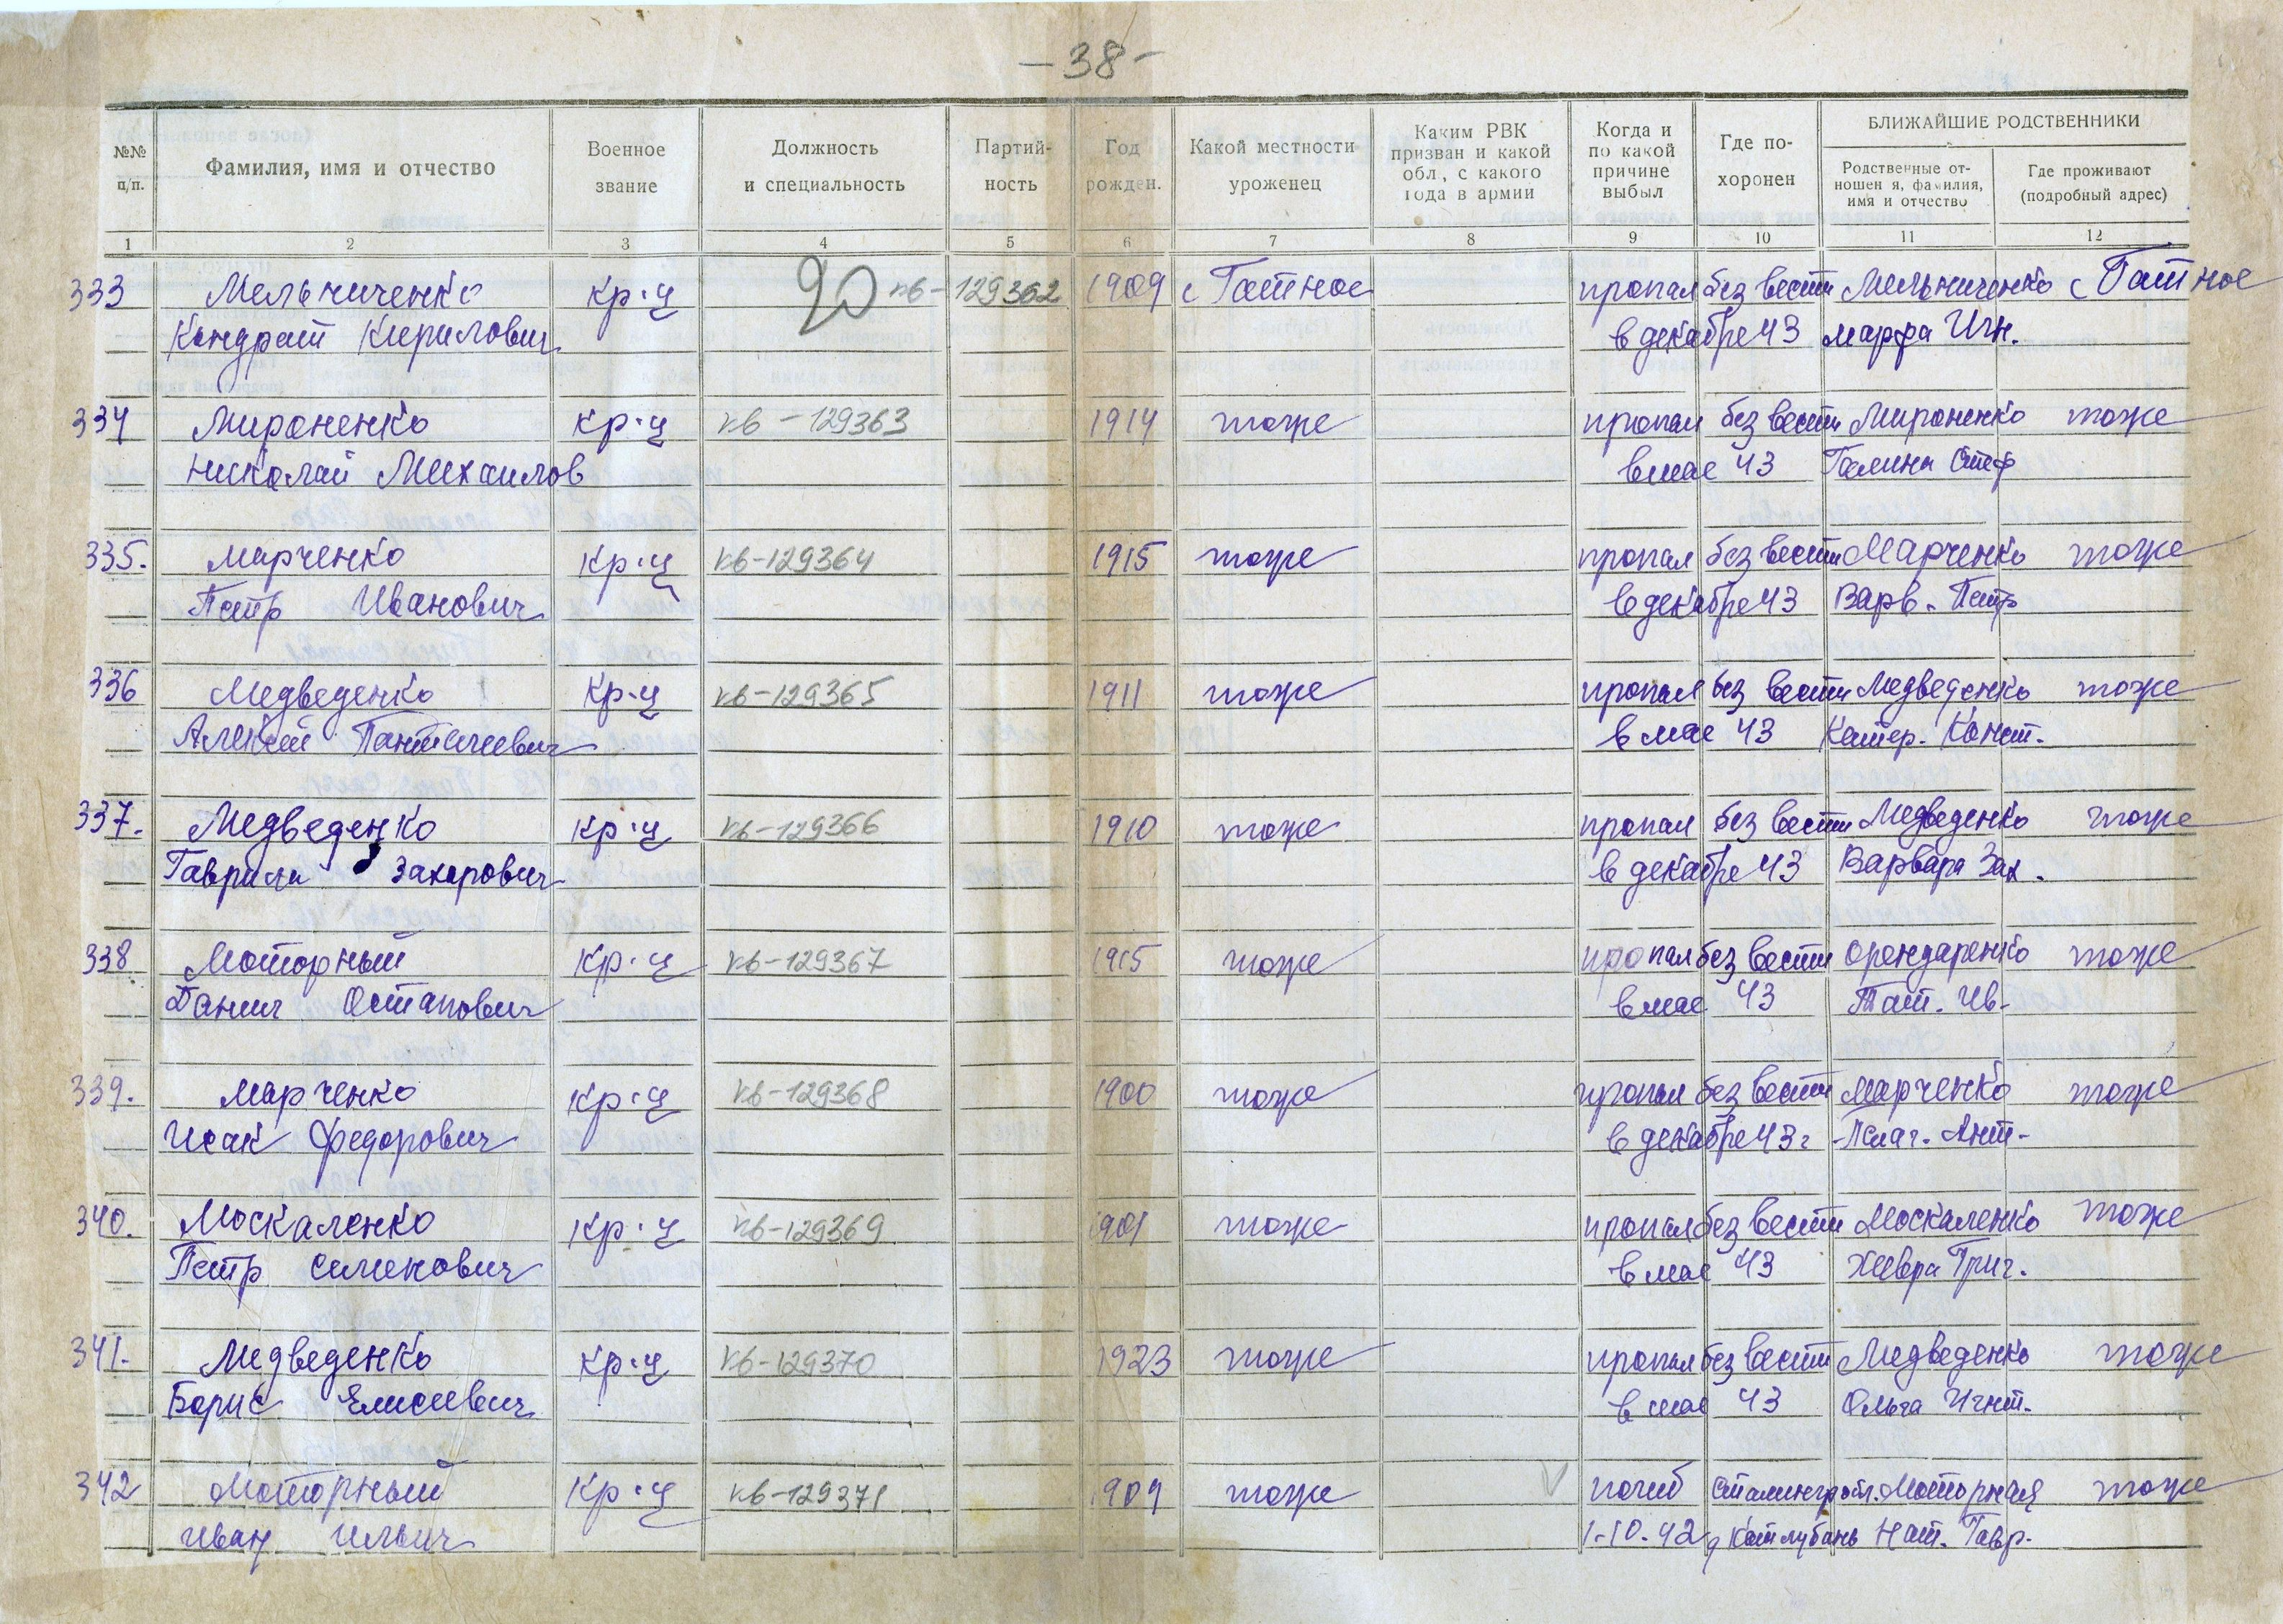 -38-
№№ п/п.
Фамилия, имя и отчество
Военное звание
Должность и специальность
Партий-ность
Год рожден.
Какой местности уроженец
Каким РВК призван и какой обл, с какого года в армии
Когда и по какой причине выбыл
Где по-хоронен
БЛИЖАЙШИЕ РОДСТВЕННИКИ
Родственные от-ношен я, фамилия, имя и отчество
Где проживают (подробный адрес)
1 2 3 4 5 6 7 8 9 10 11 12
333 Мельниченко кр-ц 20 кв-129362 1909 с Гатное пропал без вести Мельниченко с Гатное
Кондрат Кирилович в декабре 43 марфа Игн.
334 Мироненко кр-ц кв-129363 1914 тоже пропал без вести Мироненко тоже
Николай Михаилов в мае 43 Галина Стеф
335. Марченко кр-ц кв-129364 1915 тоже пропал без вести Марченко тоже
Петр Иванович в декабре 43 Варв. Петр
336 Медведенко кр-ц кв-129365 1911 тоже пропал без вести Медведенко тоже
Алексей в мае 43 Катер. Конст.
337. Медведенко кр-ц кв-129366 1910 тоже пропал без вести Медведенко тоже
Гаврила Захарович в декабре 43 Варвара Зах.
338 Моторный кр-ц кв-129367 1915 тоже пропал без вести Орендаренко тоже
Данил Остапович в мае 43 Тат. Ив-
339. Марченко кр-ц кв-129368 1900 тоже пропал без вести Марченко тоже
Исак Федорович в декабре 43г Пелаг. Ант-
340. Москаленко кр-ц кв-129369 1901 тоже пропал без вести Москаленко тоже
Петр Семенович в мае 43 Хивря Григ.
341. Медведенко кр-ц кв-129370 1923 тоже пропал без вести Медведенко тоже
Борис Елисеевич в мае 43 Ольга Игнт.
342 Моторный кр-ц кв-129371 1909 тоже погиб Моторная тоже
Иван Ильич 1-10.42 д Котлубань Нат. Гавр.